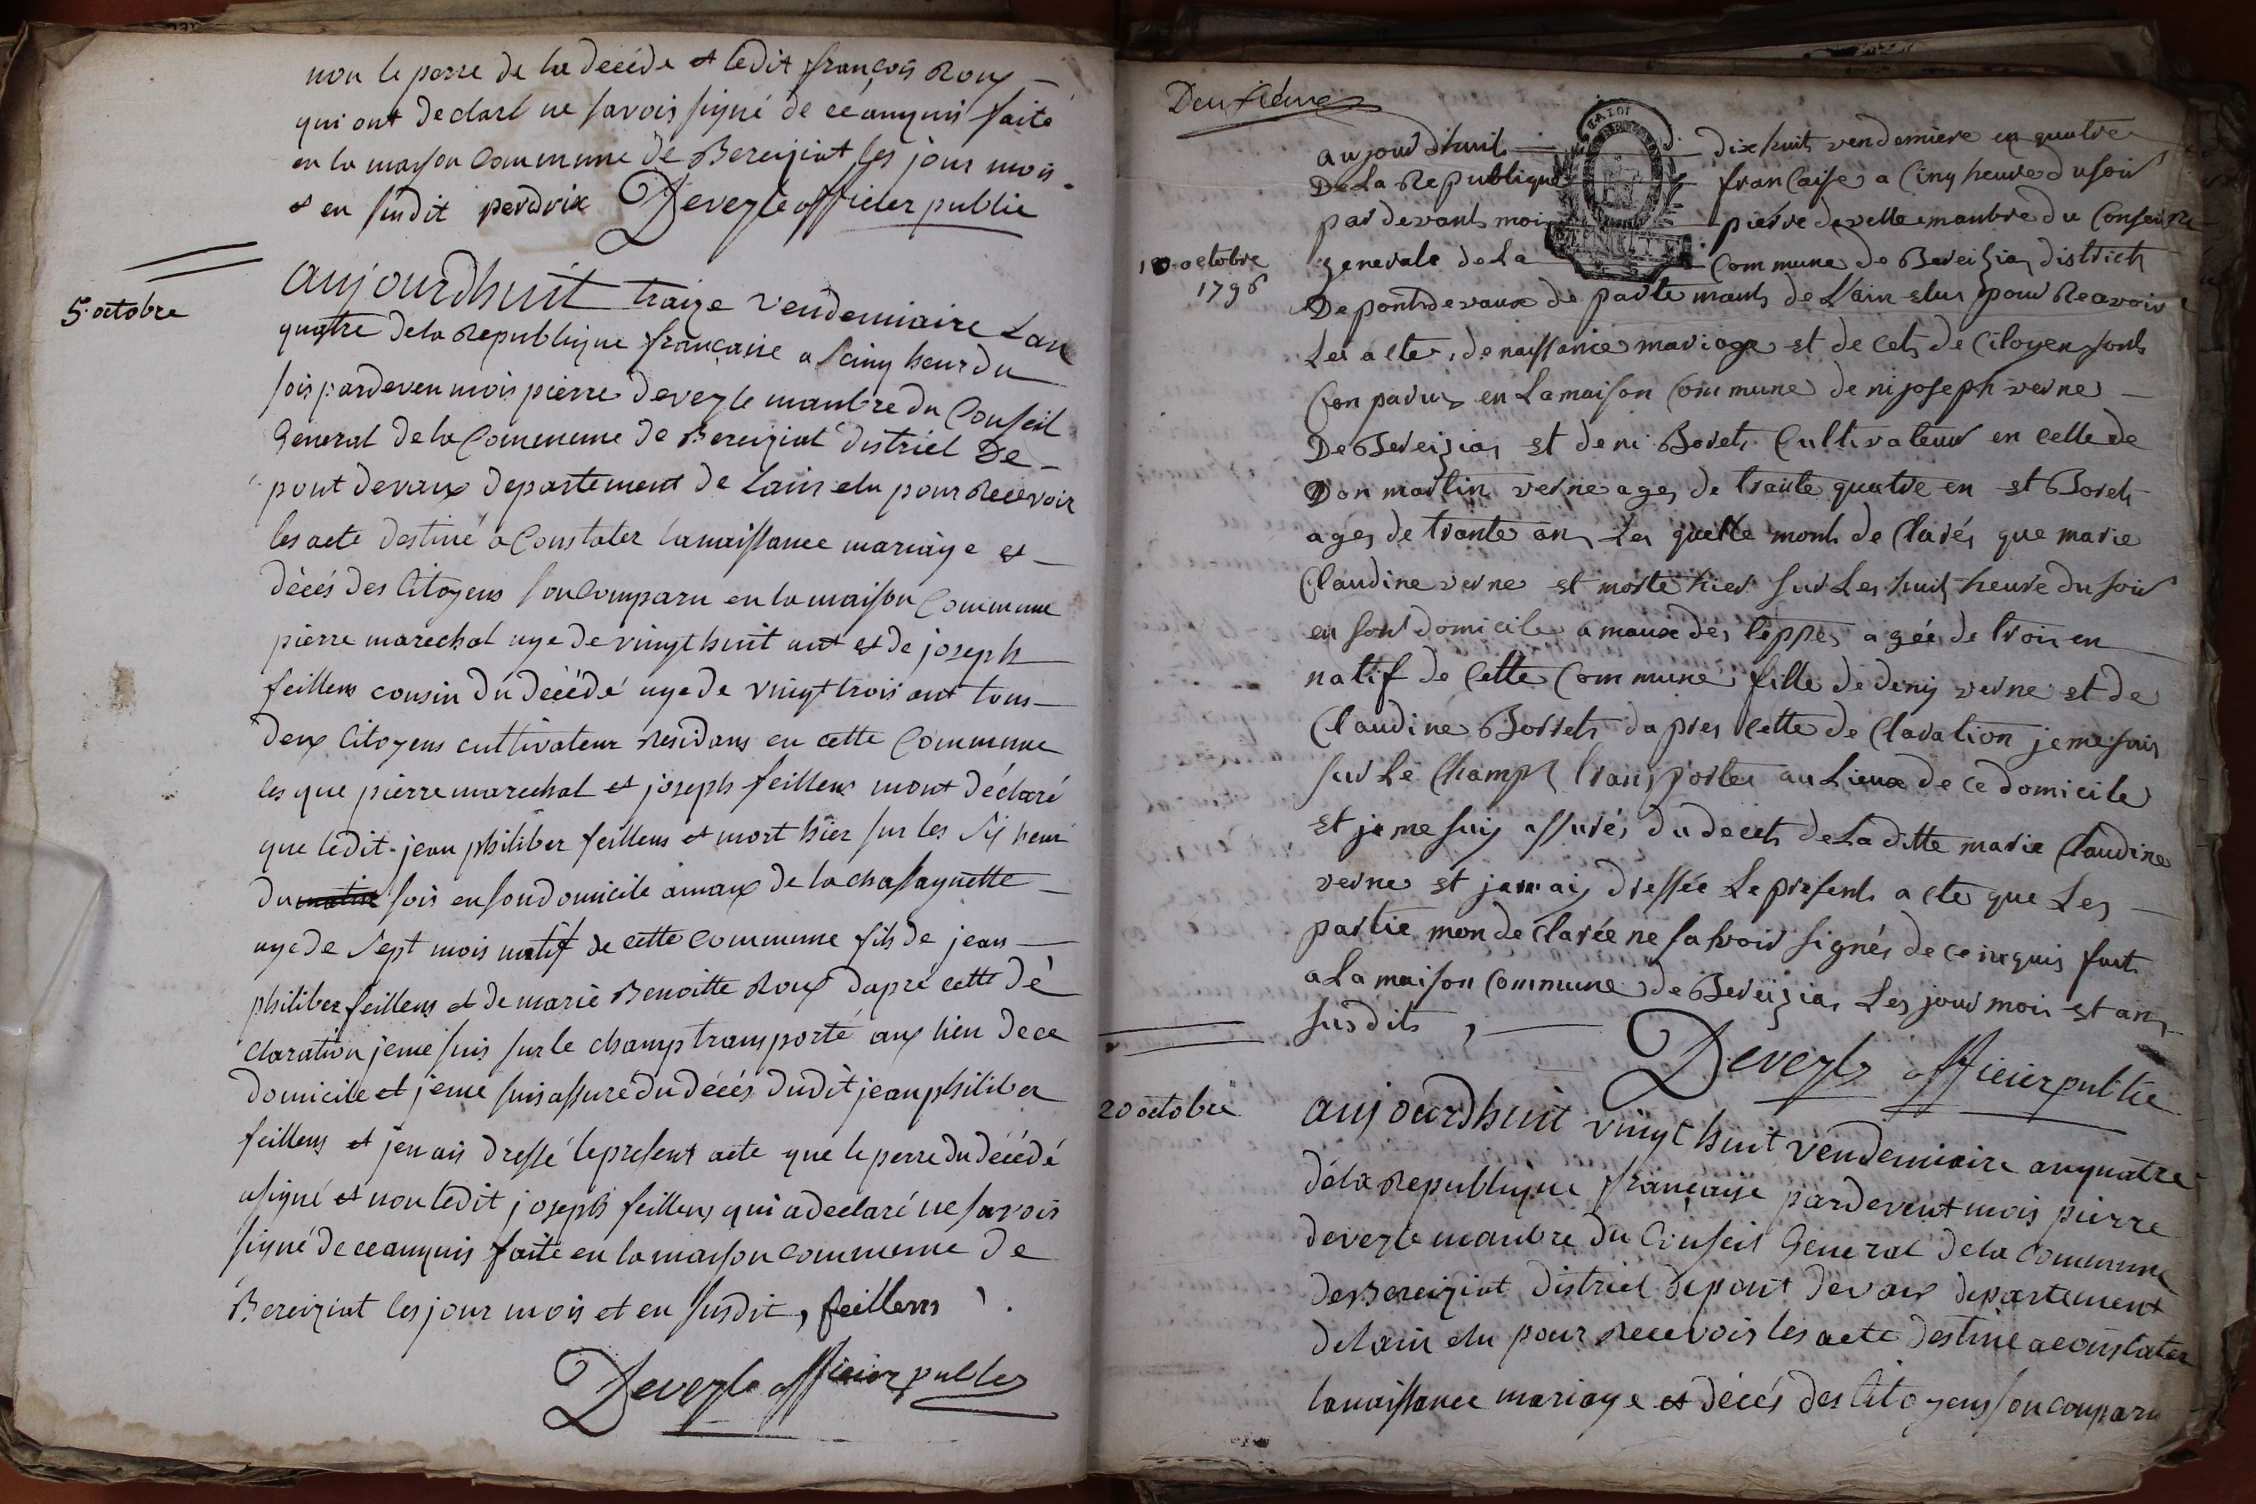 non le perre de la décéde et ledit françois Roux
qui ont declaré ne savois signé de ce anquis faite
en la mayson Commune de Bereiziat les jour mois
et en susdit perdrix Deveyle officier public
5. octobre
aujourdhuit traize vendemiaire Lan
quatre de la Republique francaise a cinq heur du
sois pardeven mois pierre deveyle manbre du Conseil
General de la Commune de Bereiziat district De
pont devaux departement de Lain elu pour Recevoir
les acte destiné a Constater la naissance mariage et
décés des Citoyens son Comparu en la maison Commune
pierre marechal age de vingt huit ant et de joseph
feillens cousin du décédé age de vingt trois ant tous
deux Citoyens cultivateur Residans en cette Commune
les que pierre marechal et joseph feillens mont déclaré
que ledit jean philiber feillens et mort hier sur les six heur
du matin sois en son domicile a maux de la chasagnette
age de sept mois natif de cette Commune fils de jean
philiber feillens et de marie Benoitte Roux dapré cette dé
claration je me suis sur le champ transporté aux lieu de ce
domicile et je me suis assuré du décés dudit jean philiber
feillens et jen ais dressé le present acte que le perre du décédé
a signé et non ledit joseph feillens qui a declaré ne savois
signé de ce anquis faite en la mayson Commune de
Bereiziat les jour mois et en susdit, feillens
Deveyle officier public
Deuxieme
aujourdhuit dix huit vendemiere en quatre
De La Republique francaise a Cinq heure du soir
par devant moi pierre develle manbre du Conseille
10 octobre
1796
generale de La Commune de Bereizia district
De pont de vaux de partemant de L'ain elus pour Reavoir
Les actes de naissance mariage et decets de Citoyen sont
Con parus en La maison Commune deni joseph verne
De Bereizia et deni Boret Cultivateur en celle de
Don martin verne ages de trante quatre en et Boret
ages de trante an Les quelle mont de Clarés que marie
Claudine verne et morte hier sur Les huit heure du soir
en sont domicile a maux des teppes agée de trois en
natif de Cette Commune fille de deny verne et de
Claudine Borret dapres cette de Claration je me suis
sur Le Champt transporter au Lieux de ce domicile
et je me suis assurés du decet de La ditte marie Claudine
verne et jan ais dressée Le present acte que Les
partie mon de Clarée ne sa voir signés de ce requis fait
a La maison Commune de Bereizia Les jour mois et an
susdits,
Deveyle officier public
20 octobre
aujourdhuit vingt huit vendemiaire an quatre
de la Republique française pardevent mois pierre
deveyle manbre du Conseil General de la Commune
de Bereiziat district de pont devaux departement
de lain elu pour Recevois les acte destine a constater
la naissance mariage et décés des Citoyens son comparu